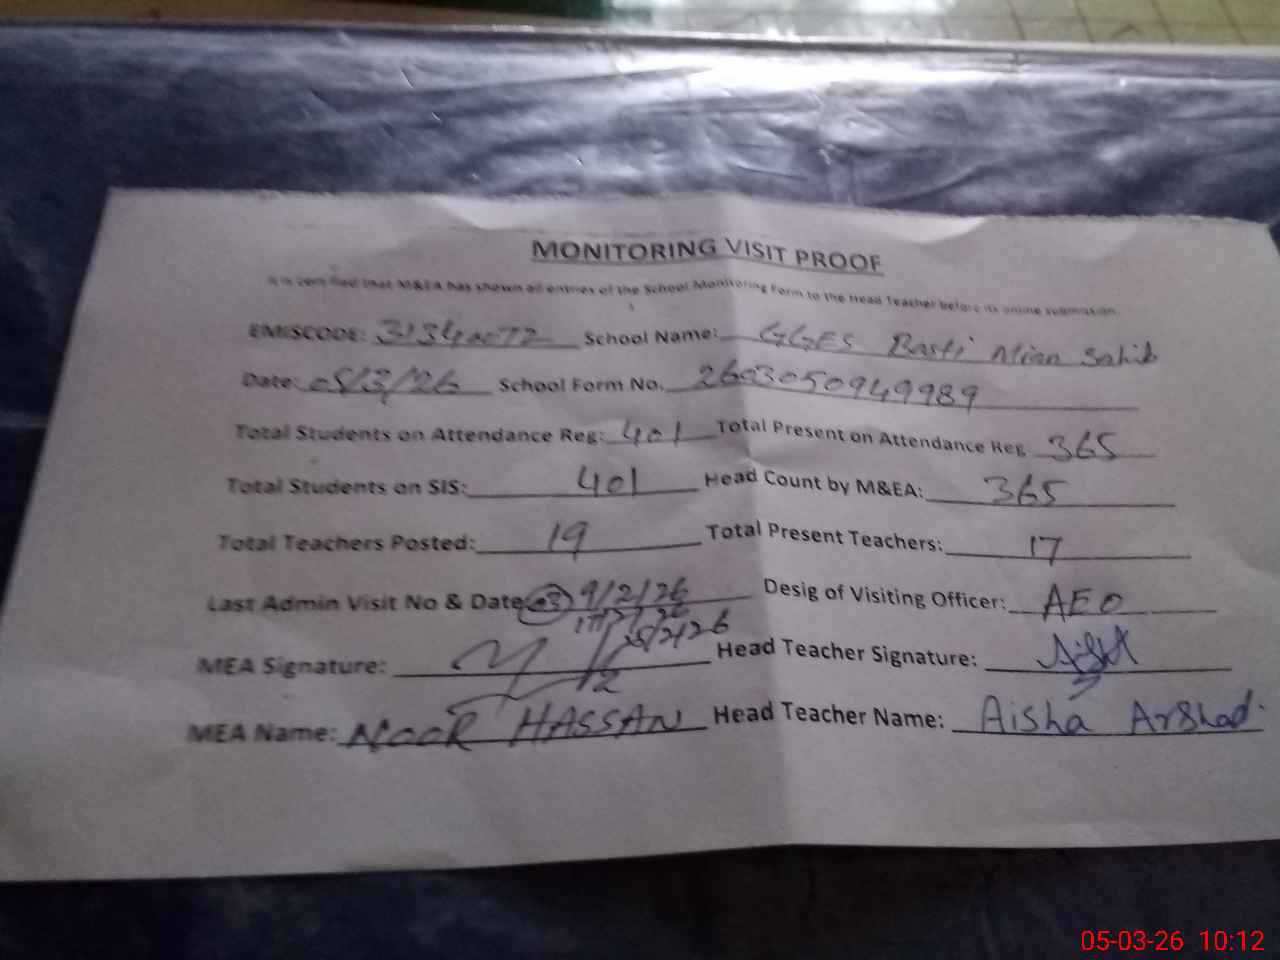 MONITORING VISIT PROOF
It is certified that M&EA has shown all entries of the School Monitoring Form to the Head Teacher before its online submission.
EMISCODE: School Name: GGES Basti Mian Sahib
Date: 05/3/26 School Form No. 2603050949989
Total Students on Attendance Reg: 401 Total Present on Attendance Reg 365
Total Students on SIS: 401 Head Count by M&EA: 365
Total Teachers Posted: 19 Total Present Teachers: 17
Last Admin Visit No & Date 03 9/2/26 Desig of Visiting Officer: AEO
17/2/26
25/2/26
MEA Signature: Head Teacher Signature:
MEA Name: NOOR HASSAN Head Teacher Name: Aisha Arshad.
05-03-26 10:12